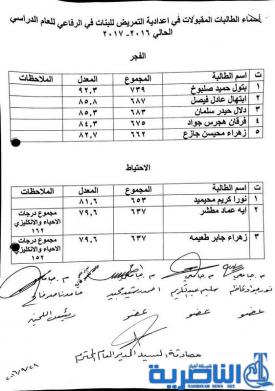 أسماء الطالبات المقبولات في اعدادية التمريض للبنات في الرفاعي للعام الدراسي
الحالي ٢٠١٦-٢٠١٧
الفجر
ت اسم الطالبة المجموع المعدل الملاحظات
١ بتول حميد صلبوخ ٧٣٩ ٩٢,٣
٢ ابتهال عادل فيصل ٦٨٧ ٨٥,٨
٣ دلال حيدر سلمان ٦٨٣ ٨٥,٣
٤ فرقان هجرس جواد ٦٧٥ ٨٤,٣
٥ زهراء محيسن جازع ٦٦٢ ٨٢,٧
الاحتياط
ت اسم الطالبة المجموع المعدل الملاحظات
١ نورا كريم محيميد ٦٥٣ ٨١,٦
٢ ايه عماد مطشر ٦٣٧ ٧٩,٦ مجموع درجات الاحياء والانكليزي ١٦٢
٣ زهراء جابر طعيمه ٦٣٧ ٧٩,٦ مجموع درجات الاحياء والانكليزي ١٥٢
عضو
عضو
عضو
رئيس اللجنة
مصادقة السيد المدير العام المحترم
الناصرية